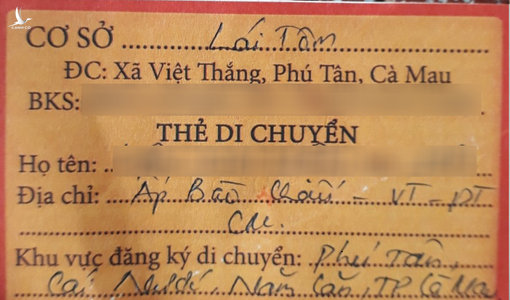 thanhnien.vn
CƠ SỞ Lái Tâm
ĐC: Xã Việt Thắng, Phú Tân, Cà Mau
BKS:
THẺ DI CHUYỂN
Họ tên:
Địa chỉ: Ấp Bào Chấu - VT - PT
CM.
Khu vực đăng ký di chuyển: Phú Tân,
Cái Nước, Năm Căn, TP Cà Mau